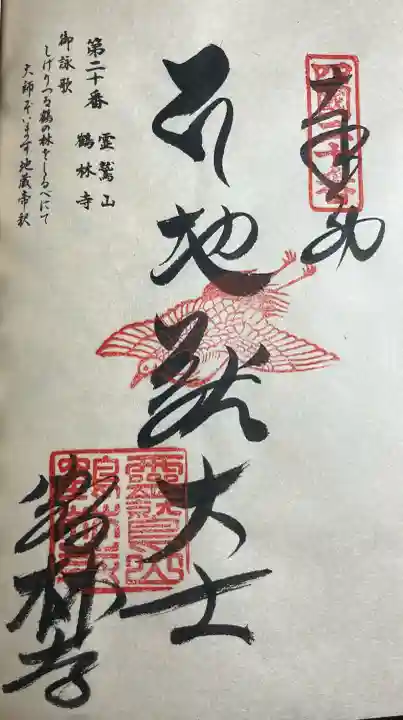 奉納
四国二十番
地蔵大士
鶴林寺
第二十番 霊鷲山
鶴林寺
御詠歌
しげりつる鶴の林をしるべにて
大師ぞいます地蔵帝釈